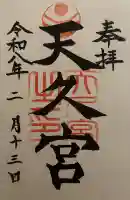 奉拝
天久宮
令和八年二月十三日